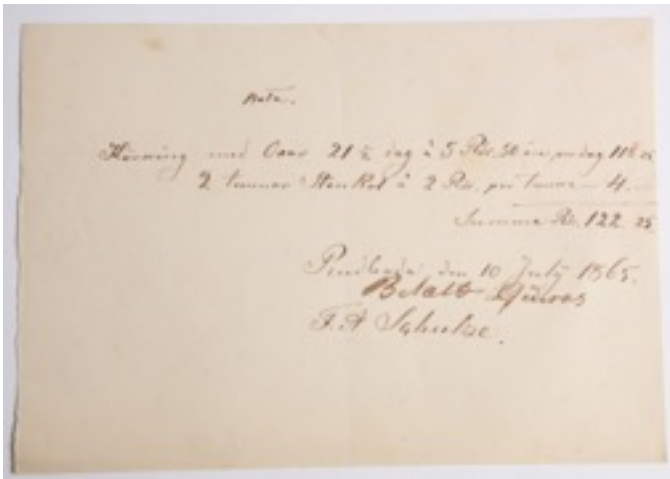 Nota.
Körning med Oxar 21 ½ dag à 5 Rdr. 50 öre pr dag 118 25
2 tunnor Sten Kol à 2 Rdr. per tunna — 4. —
Summa Rdr. 122. 25
den 10 July 1865.
Betalt
F. A Schulze.